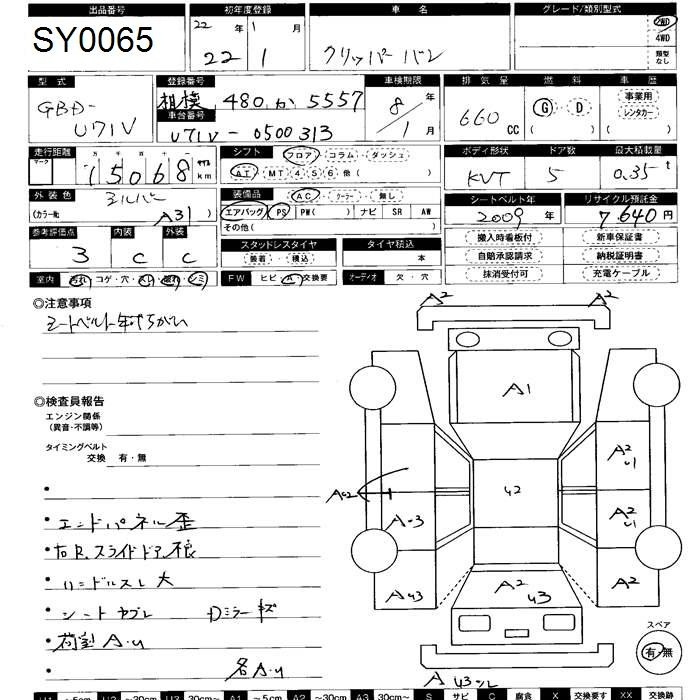 出品番号 初年度登録 車名 グレード/類別型式
SY0065 22年 1月 2WD
22 1 クリッパー バン 4WD
類型なし
型式 登録番号 車検期限 排気量 燃料 車歴
GBD-U71V 相模 480 か 5557 8年 660cc G・D 事業用
車台番号 レンタカー
U71V-0500313 1月 ( ) ( )
走行距離 シフト フロア・コラム・ダッシュ ボディ形状 ドア数 最大積載量
マーク 十万千百十 15068 km AT・MT 4 5 6 他( ) KVT 5 0.35t
外装色 シルバー 装備品 AC・クーラー・無し シートベルト年 リサイクル預託金
(カラーNo. A31) エアバッグ PS PW( ) ナビ SR AW 2009年 7,640円
参考評価点 内装 外装 その他( ) 搬入時看板付 新車保証書
3 C C スタッドレスタイヤ タイヤ積込 自賠承認請求 納税証明書
装着・積込 本 抹消受付可 充電ケーブル
室内 汚れ・コゲ・穴・スレ・破れ・シミ FW ヒビ・A・交換要 オーディオ 欠・穴
◎注意事項
シートベルト年式ちがい
◎検査員報告
エンジン関係
(異音・不調等)
タイミングベルト
交換 有・無
・
・エンドパネル歪
・右R.スライドドア.痕
・ハンドルスレ大
・シート ヤブレ Dミラーキズ
・荷室A.u
・各A.u
A2 A2
A1
A2 U1
U2
AU2
AU3
A2 U1
AU3
A2 U3
A2
スペア
有・無
A U3
U1 ～5cm U2 ～30cm U3 30cm～ A1 ～5cm A2 ～30cm A3 30cm～ S サビ C 腐食 X 交換要す XX 交換跡